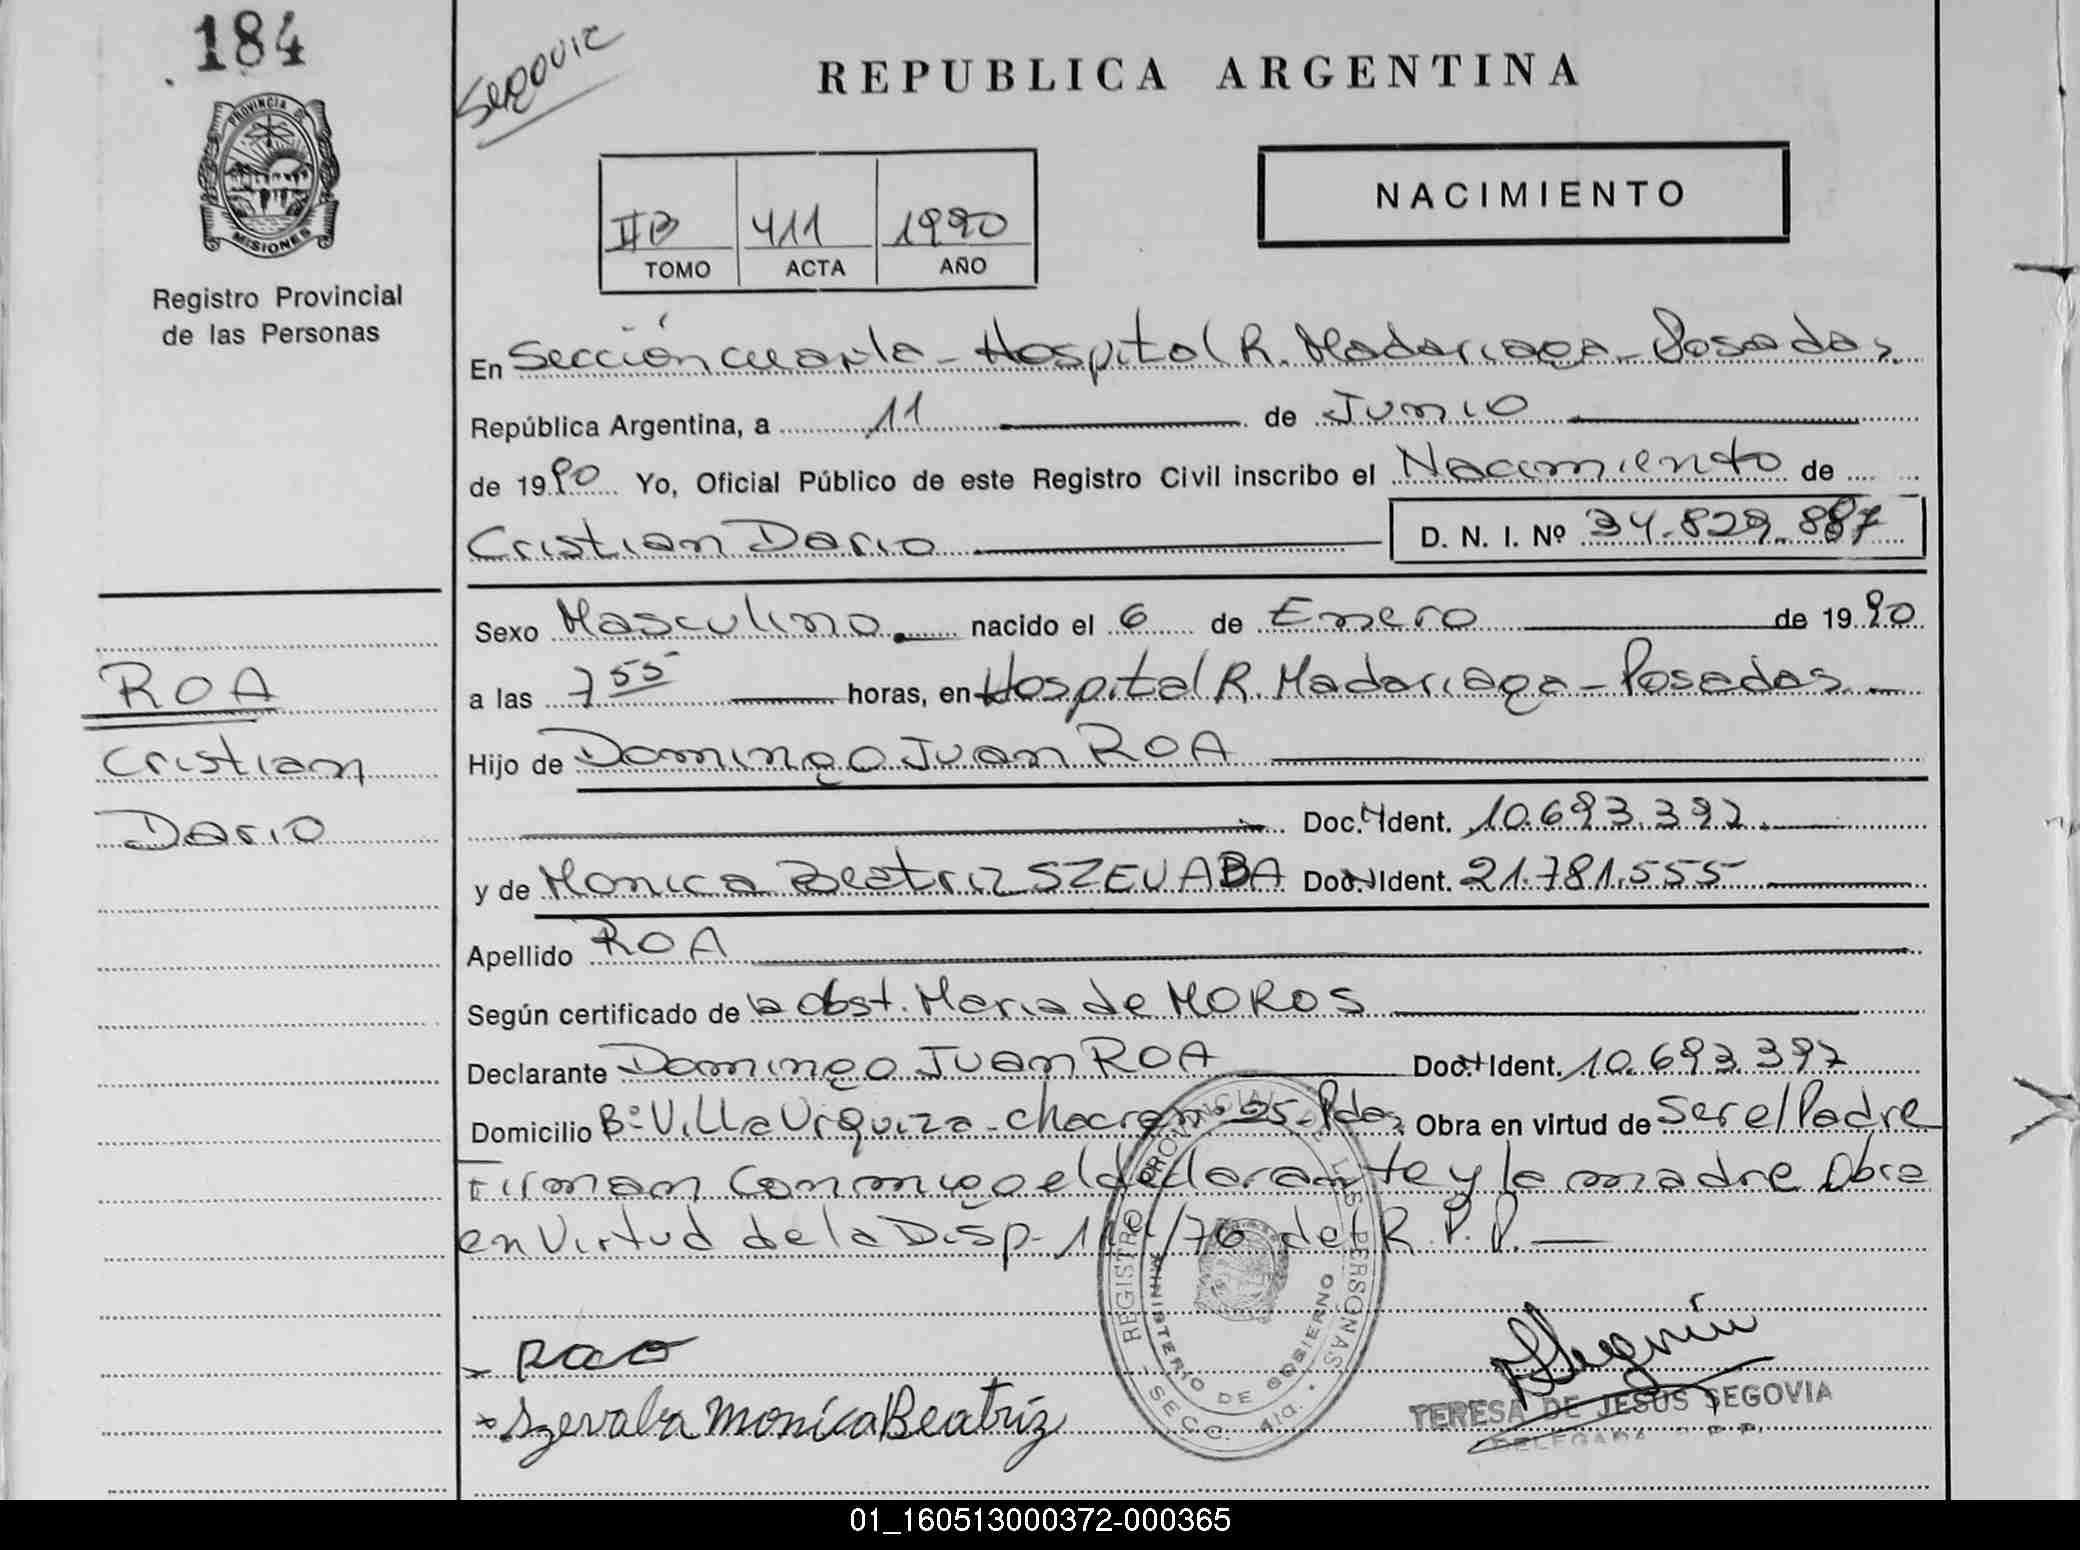 184
Segovia
REPUBLICA ARGENTINA
PROVINCIA DE
MISIONES
Registro Provincial
de las Personas
IIB 411 1990
TOMO ACTA AÑO
NACIMIENTO
En Sección cuarta - Hospital R. Madariaga - Posadas
República Argentina, a 11 de Junio
de 1990 Yo, Oficial Público de este Registro Civil inscribo el Nacimiento de
Cristian Dario D. N. I. Nº 34.829.887
Sexo Masculino nacido el 6 de Enero de 1990
a las 7 55 horas, en Hospital R. Madariaga - Posadas
Hijo de Domingo Juan ROA
Doc. Ident. 10.693.397
y de Monica Beatriz SZEVABA Doc. Ident. 21.781.555
Apellido ROA
Según certificado de la obst. Maria de MOROS
Declarante Domingo Juan ROA Doc. Ident. 10.693.397
Domicilio Bº Villa Urquiza - chacra 25 - Pdas Obra en virtud de Ser el Padre
Firman conmigo el declarante y la madre Obra
en Virtud de la Disp. /76 del R. P. P.
ROA
Cristian
Dario
x Szevaba Monica Beatriz
REGISTRO PROVINCIAL DE LAS PERSONAS
MINISTERIO DE GOBIERNO
SECC. 4ta.
TERESA DE JESUS SEGOVIA
DELEGADA R. P. P.
01_160513000372-000365